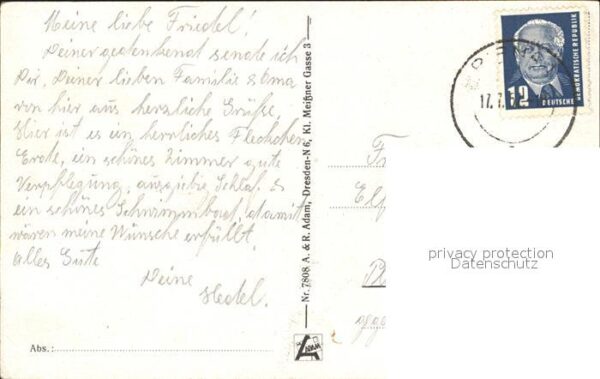 Meine liebe Friedel!
Deiner gedenkend sende ich
Dir, Deiner lieben Familie u. Oma
von hier aus herzliche Grüße.
Hier ist es ein herrliches Fleckchen
Erde, ein schönes Zimmer gute
Verpflegung, ausgiebig Schlaf u.
ein schönes Schwimmbad, damit
wären meine Wünsche erfüllt.
Alles Gute
Deine
Hedel.
Abs.:
Nr. 7808 A. & R. Adam, Dresden-N 6, Kl. Meißner Gasse 3
ADAM
12
DEUTSCHE
DEMOKRATISCHE REPUBLIK
17.7.
privacy protection
Datenschutz